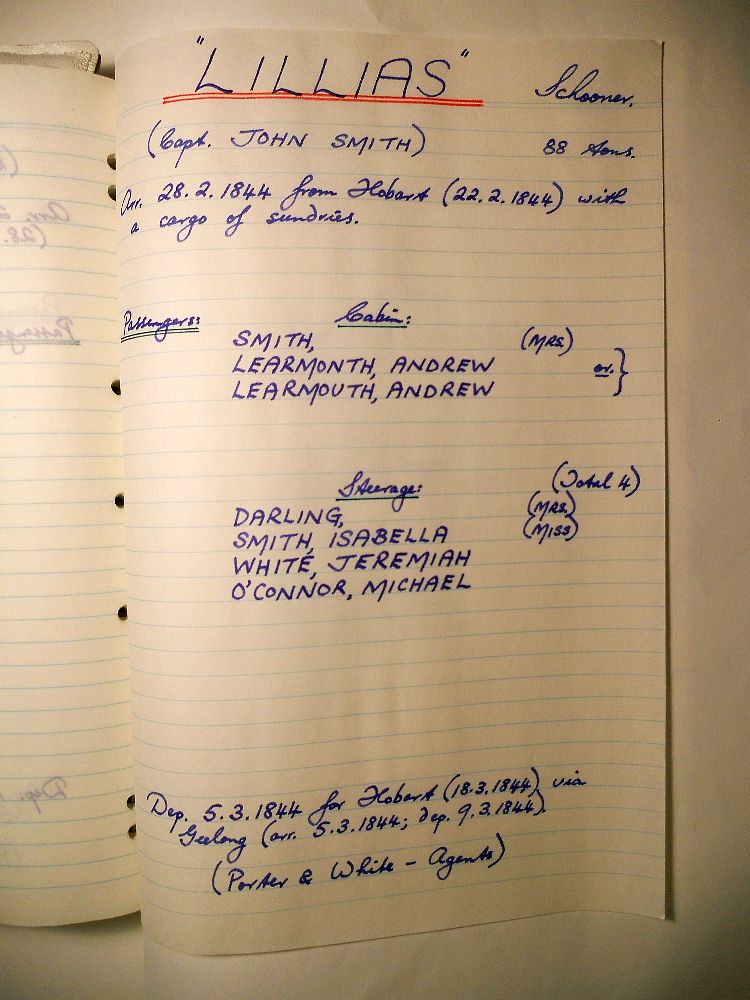 "LILLIAS" Schooner.
(Capt. JOHN SMITH) 88 tons.
Arr. 28.2.1844 from Hobart (22.2.1844) with
a cargo of sundries.
Passengers: Cabin:
SMITH, (MRS.)
LEARMONTH, ANDREW or. }
LEARMOUTH, ANDREW
Steerage: (Total 4)
DARLING, (MRS.)
SMITH, ISABELLA (MISS)
WHITE, JEREMIAH
O'CONNOR, MICHAEL
Dep. 5.3.1844 for Hobart (18.3.1844) via
Geelong (arr. 5.3.1844; dep. 9.3.1844).
(Porter & White - Agents)